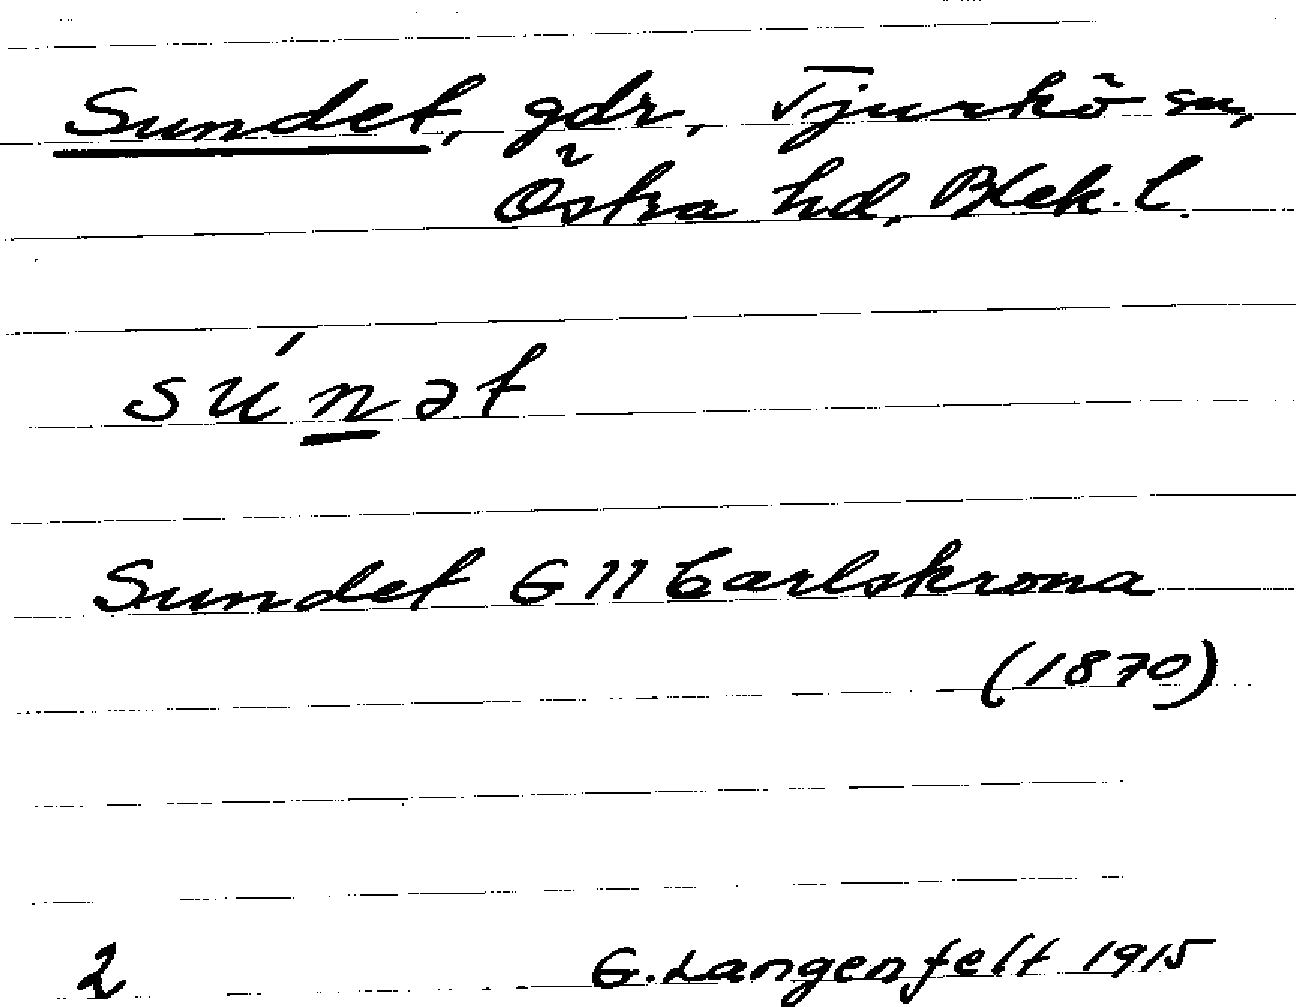 Sundet, gdr, Tjurkö sn,
Östra hd, Blek. l.
sú́n̲ət
Sundet G 11 Carlskrona
(1870)
2 G. Langenfelt 1915